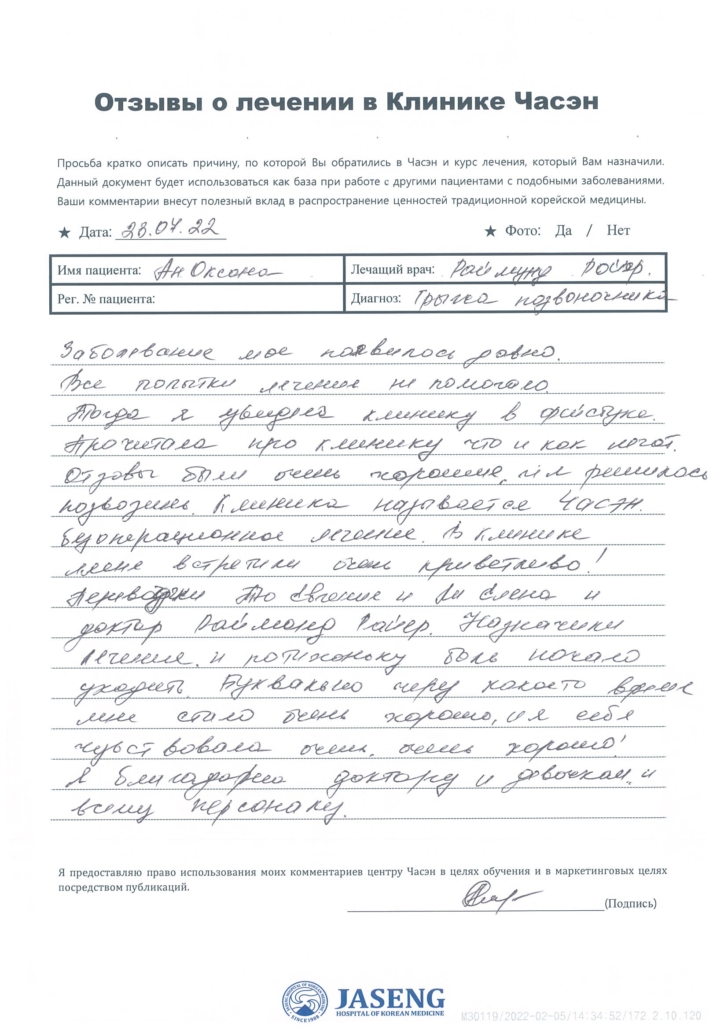 Отзывы о лечении в Клинике Часэн
Просьба кратко описать причину, по которой Вы обратились в Часэн и курс лечения, который Вам назначили.
Данный документ будет использоваться как база при работе с другими пациентами с подобными заболеваниями.
Ваши комментарии внесут полезный вклад в распространение ценностей традиционной корейской медицины.
★ Дата: 28.07.22 ★ Фото: Да / Нет
Имя пациента: Ан Оксана Лечащий врач: Раймунд Ройер.
Рег. № пациента: Диагноз: Грыжа позвоночника
Заболевание мое появилось давно.
Все попытки лечение не помогало.
Тогда я увидела клинику в фейсбуке.
Прочитала про клинику что и как лечат.
Отзовы были очень хорошие, и я решилась
позвозить. Клиника называется Часэн.
безоперационное лечение. В клинике
меня встретили очень приветливо!
Переводчики Тю Евгения и Ли Елена и
доктор Раймонд Райер. Назначили
лечение, и потихоньку боль начало
уходить. Буквально через какоето время
мне стало очень хорошо, и я себя
чувствовала очень, очень хорошо!
Я благадарна доктору и девочкам, и
всему персоналу.
Я предоставляю право использования моих комментариев центру Часэн в целях обучения и в маркетинговых целях
посредством публикаций.
(Подпись)
JASENG
HOSPITAL OF KOREAN MEDICINE
M30119/2022-02-05/14:34:52/172.2.10.120